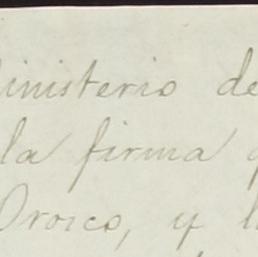 Ministerio de
la firma
Orosco, y